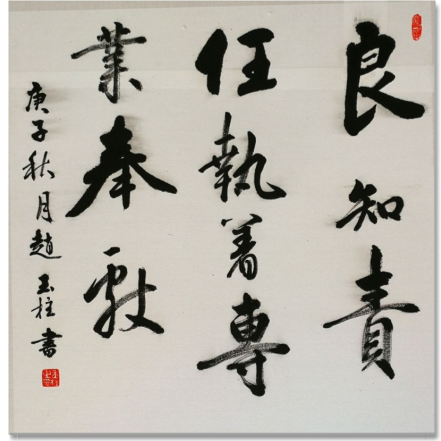 良知責
任執着專
業奉獻
庚子秋月趙玉柱書